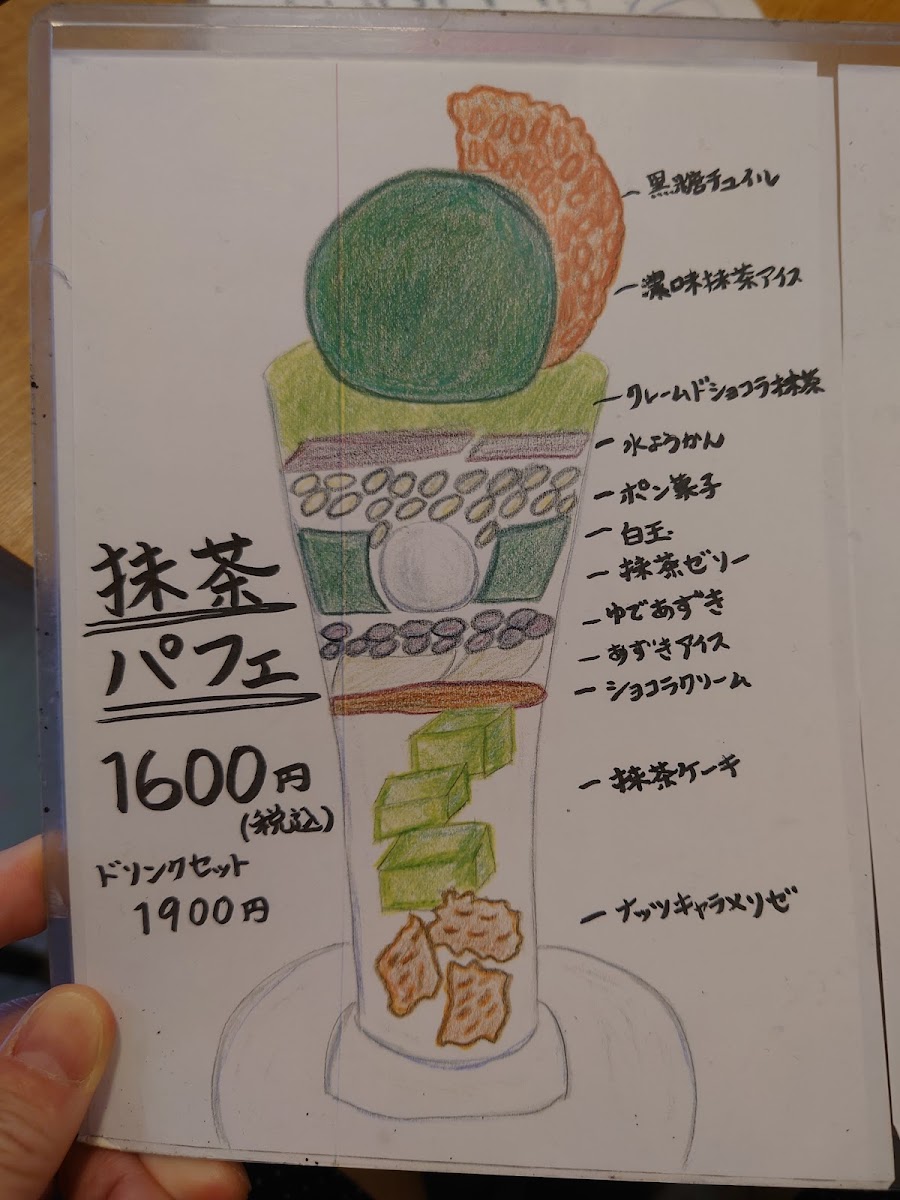 黒糖チュイル
濃味抹茶アイス
クレームドショコラ抹茶
水ようかん
ポン菓子
白玉
抹茶ゼリー
ゆであずき
あずきアイス
ショコラクリーム
抹茶ケーキ
ナッツキャラメリゼ
抹茶
パフェ
1600円
(税込)
ドリンクセット
1900円